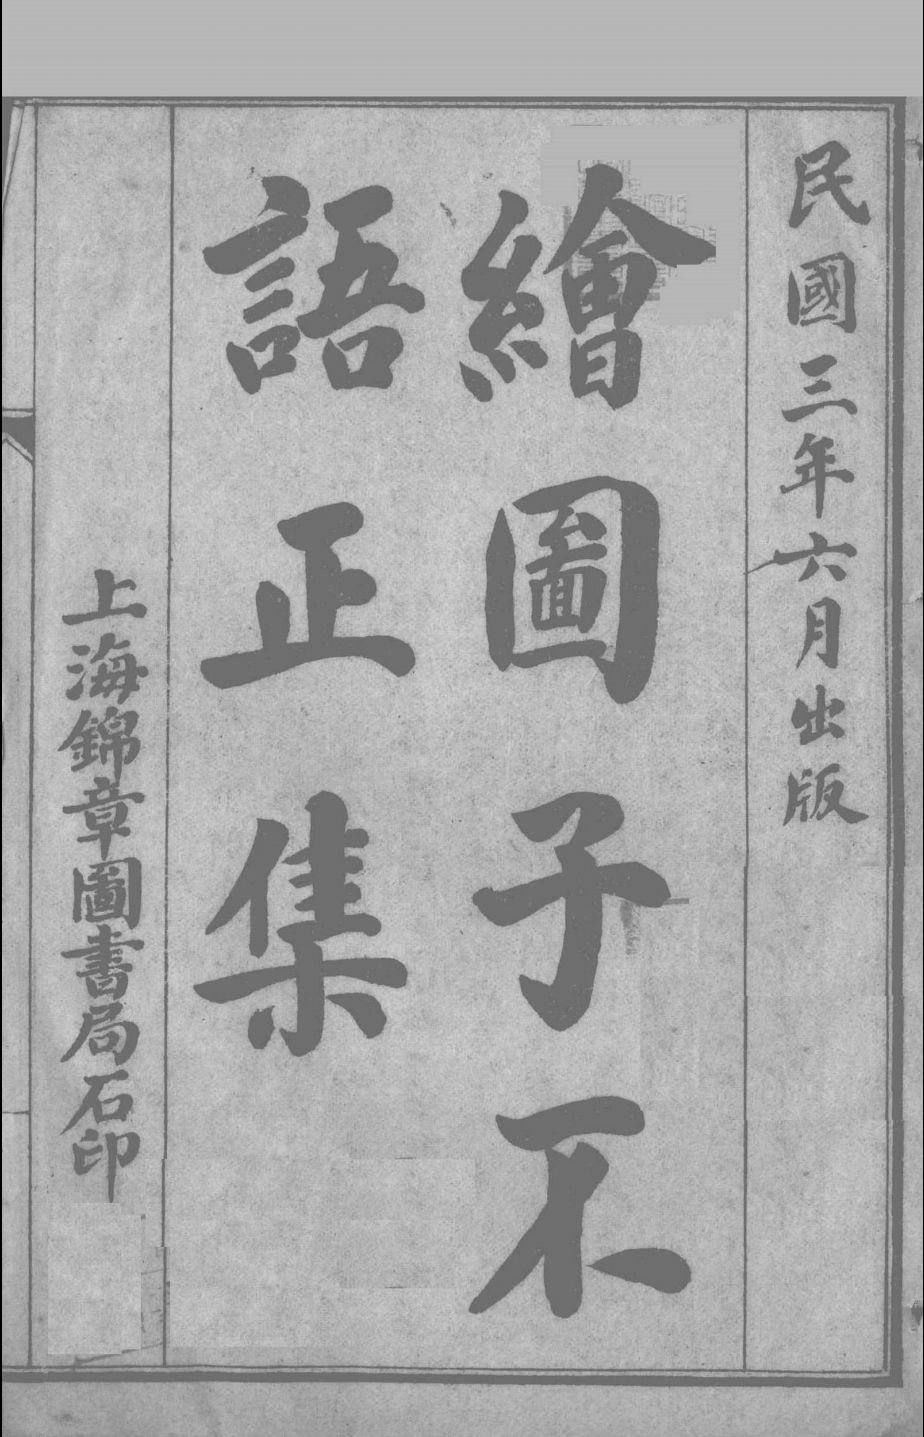 民國三年六月出版
繪圖子不
語正集
上海錦章圖書局石印